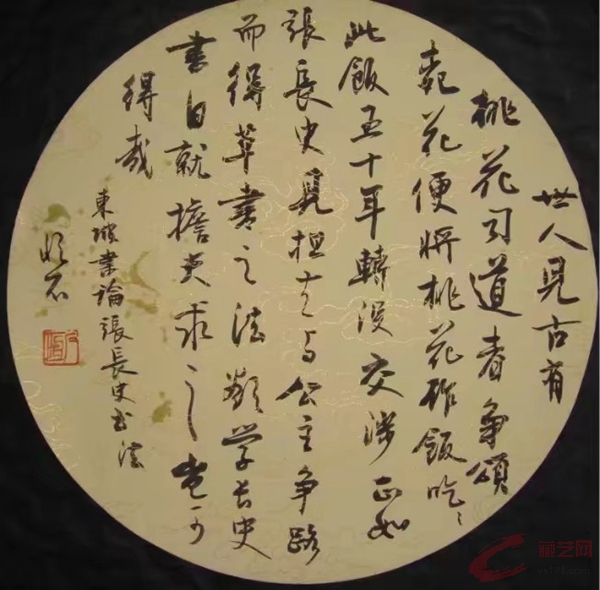 世人見古有
桃花道者爭頌
桃花便將桃花作飯吃〻
此飯五十年轉没交涉正如
張長史見担夫与公主争路
而得草書之法欲學長史
書日就擔夫求之豈可
得哉
東坡書論張長史书法